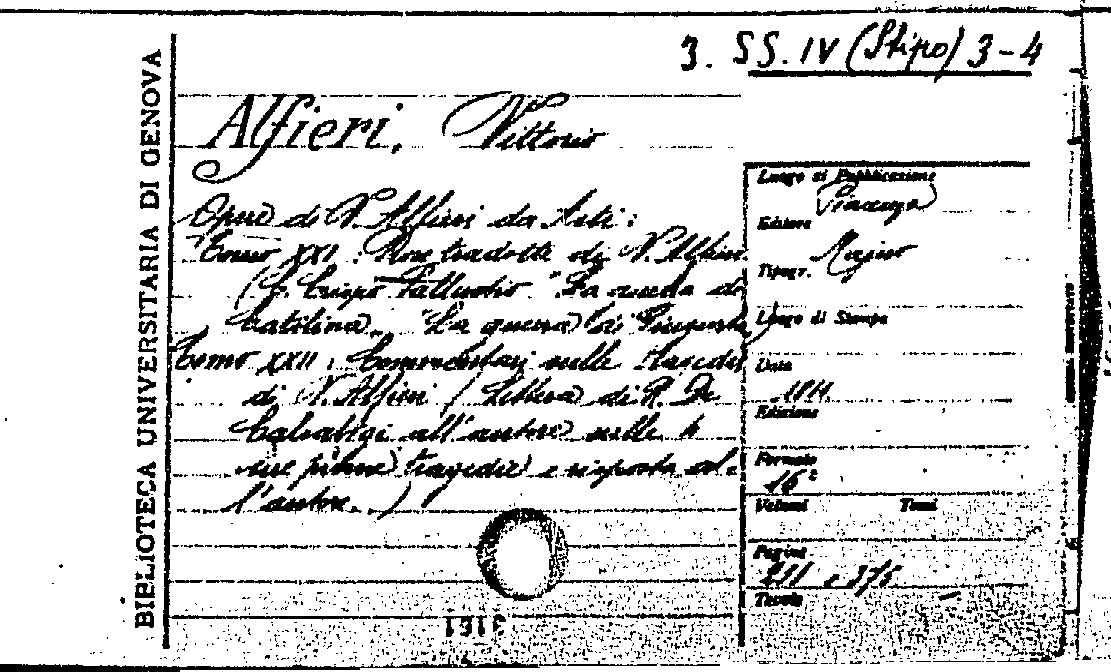 3. SS. IV (Stipo) 3-4
BIBLIOTECA UNIVERSITARIA DI GENOVA
Alfieri, Vittorio
Opere di V. Alfieri da Asti:
Tomo XXI: tradotti di V. Alfieri
(C. Crispo Sallustio "La di
Catilina", "La guerra di Giugurta")
Tomo XXII: sulle
di V. Alfieri (Lettera di R. De
Calsabigi all'autore sulle 4
sue prime tragedie e risposta
l'autore.)
Luogo di Pubblicazione
Piacenza
Editore
Majno
Tipogr.
Luogo di Stampa
Data
Edizione
Formato
16°
Volumi Tomi
Pagine
211, 375
Tavole
3161